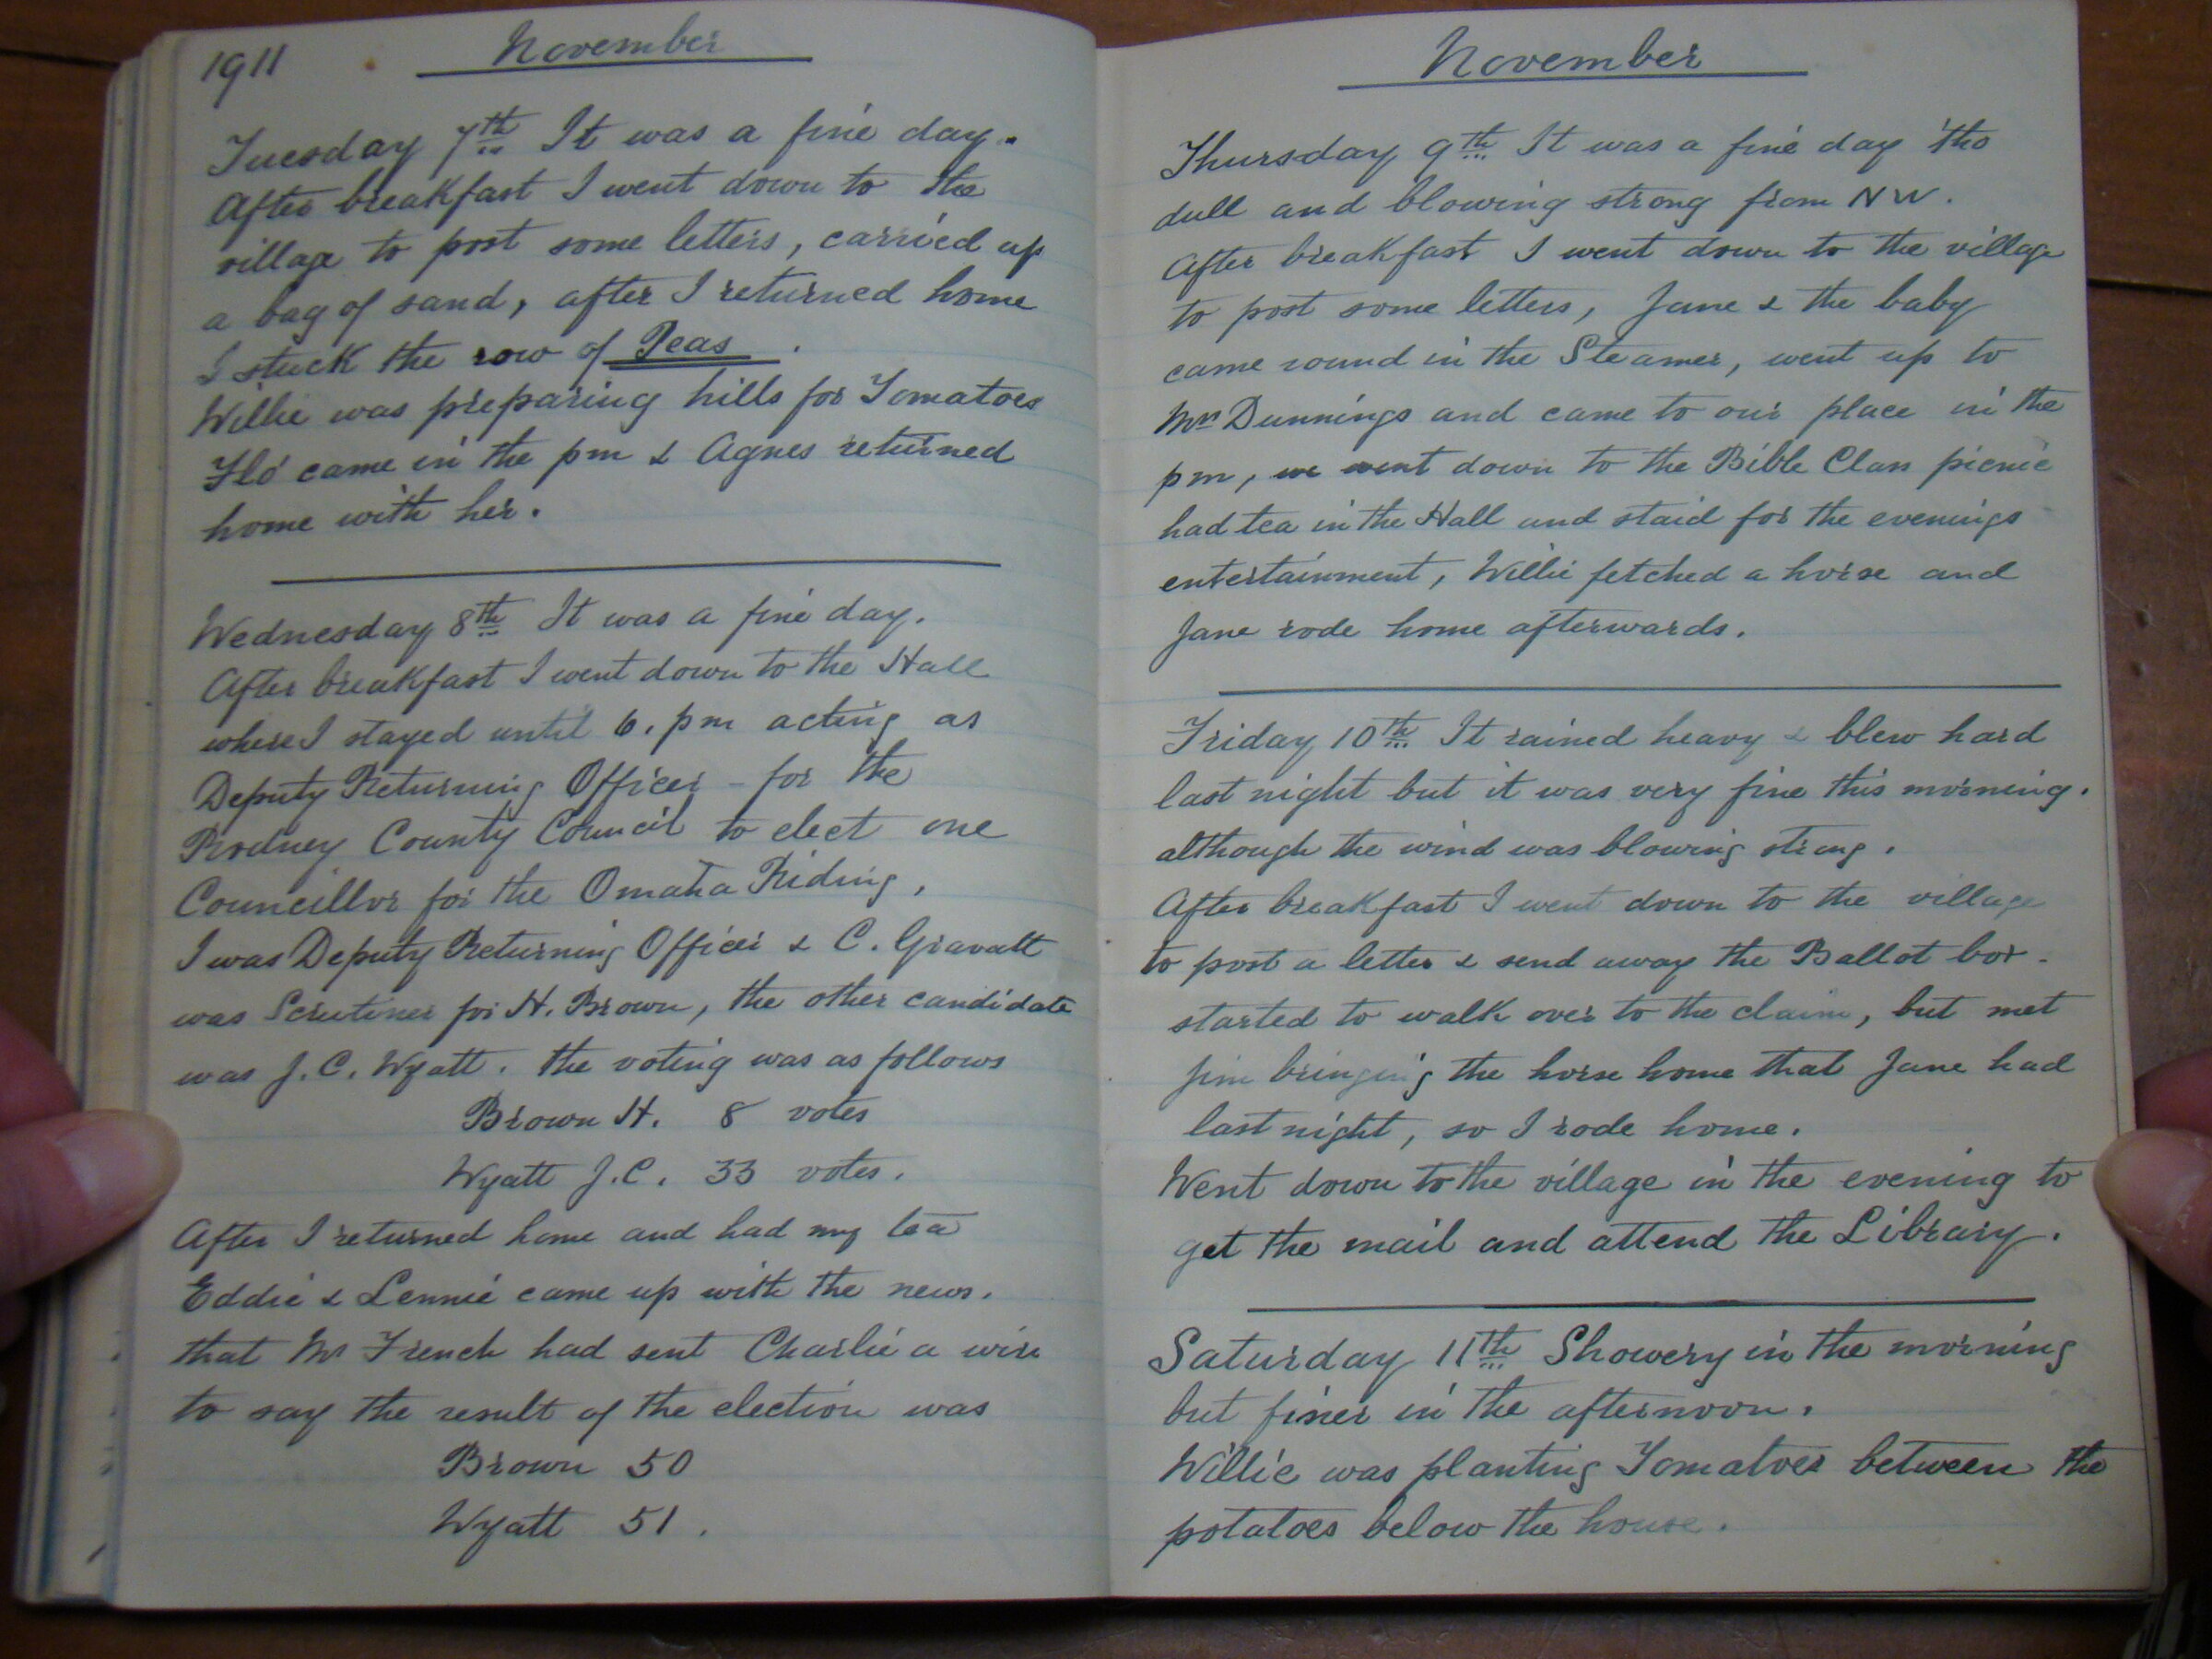 1911 November
Tuesday 7th It was a fine day.
After breakfast I went down to the
village to post some letters, carried up
a bag of sand, after I returned home
I stuck the row of Peas.
Willie was preparing hills for Tomatoes
Flo came in the pm & Agnes returned
home with her.
Wednesday 8th It was a fine day.
After breakfast I went down to the Hall
where I stayed until 6. pm acting as
Deputy Returning Officer - for the
Rodney County Council to elect one
Councillor for the Omaha Riding,
I was Deputy Returning Officer & C. Gravatt
was Scrutiner for H. Brown, the other candidate
was J. C. Wyatt. the voting was as follows
Brown H. 8 votes
Wyatt J.C. 33 votes.
After I returned home and had my tea
Eddie & Lennie came up with the news.
that Mr French had sent Charlie a wire
to say the result of the election was
Brown 50
Wyatt 51.
November
Thursday 9th It was a fine day tho
dull and blowing strong from NW.
After breakfast I went down to the village
to post some letters, Jane & the baby
came round in the Steamer, went up to
Mrs Dunnings and came to our place in the
pm, we went down to the Bible Class picnic
had tea in the Hall and staid for the evenings
entertainment, Willie fetched a horse and
Jane rode home afterwards.
Friday 10th It rained heavy & blew hard
last night but it was very fine this morning.
although the wind was blowing strong.
After breakfast I went down to the village
to post a letter & send away the Ballot box.
started to walk over to the claim, but met
Jim bringing the horse home that Jane had
last night, so I rode home.
Went down to the village in the evening to
get the mail and attend the Library.
Saturday 11th Showery in the morning
but finer in the afternoon.
Willie was planting Tomatoes between the
potatoes below the house.